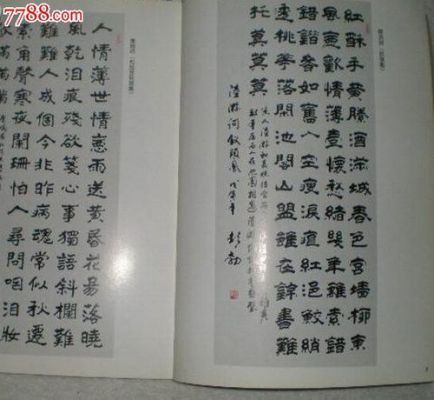 7788.com
紅酥手黃縢酒滿城春色宮墻柳東
風惡歡情薄壹懷愁緒幾年離索錯
錯錯春如舊人空瘦淚痕紅浥鮫綃
透桃花落閑池閣山盟雖在錦書難
托莫莫莫
陸游詞釵頭鳳
人情薄世情惡雨送黃昏花易落曉
風乾淚痕殘欲箋心事獨語斜欄難
難難人成個今非昨病魂常似秋遷
索角聲寒夜闌珊怕人尋問咽淚妝
瞞瞞瞞